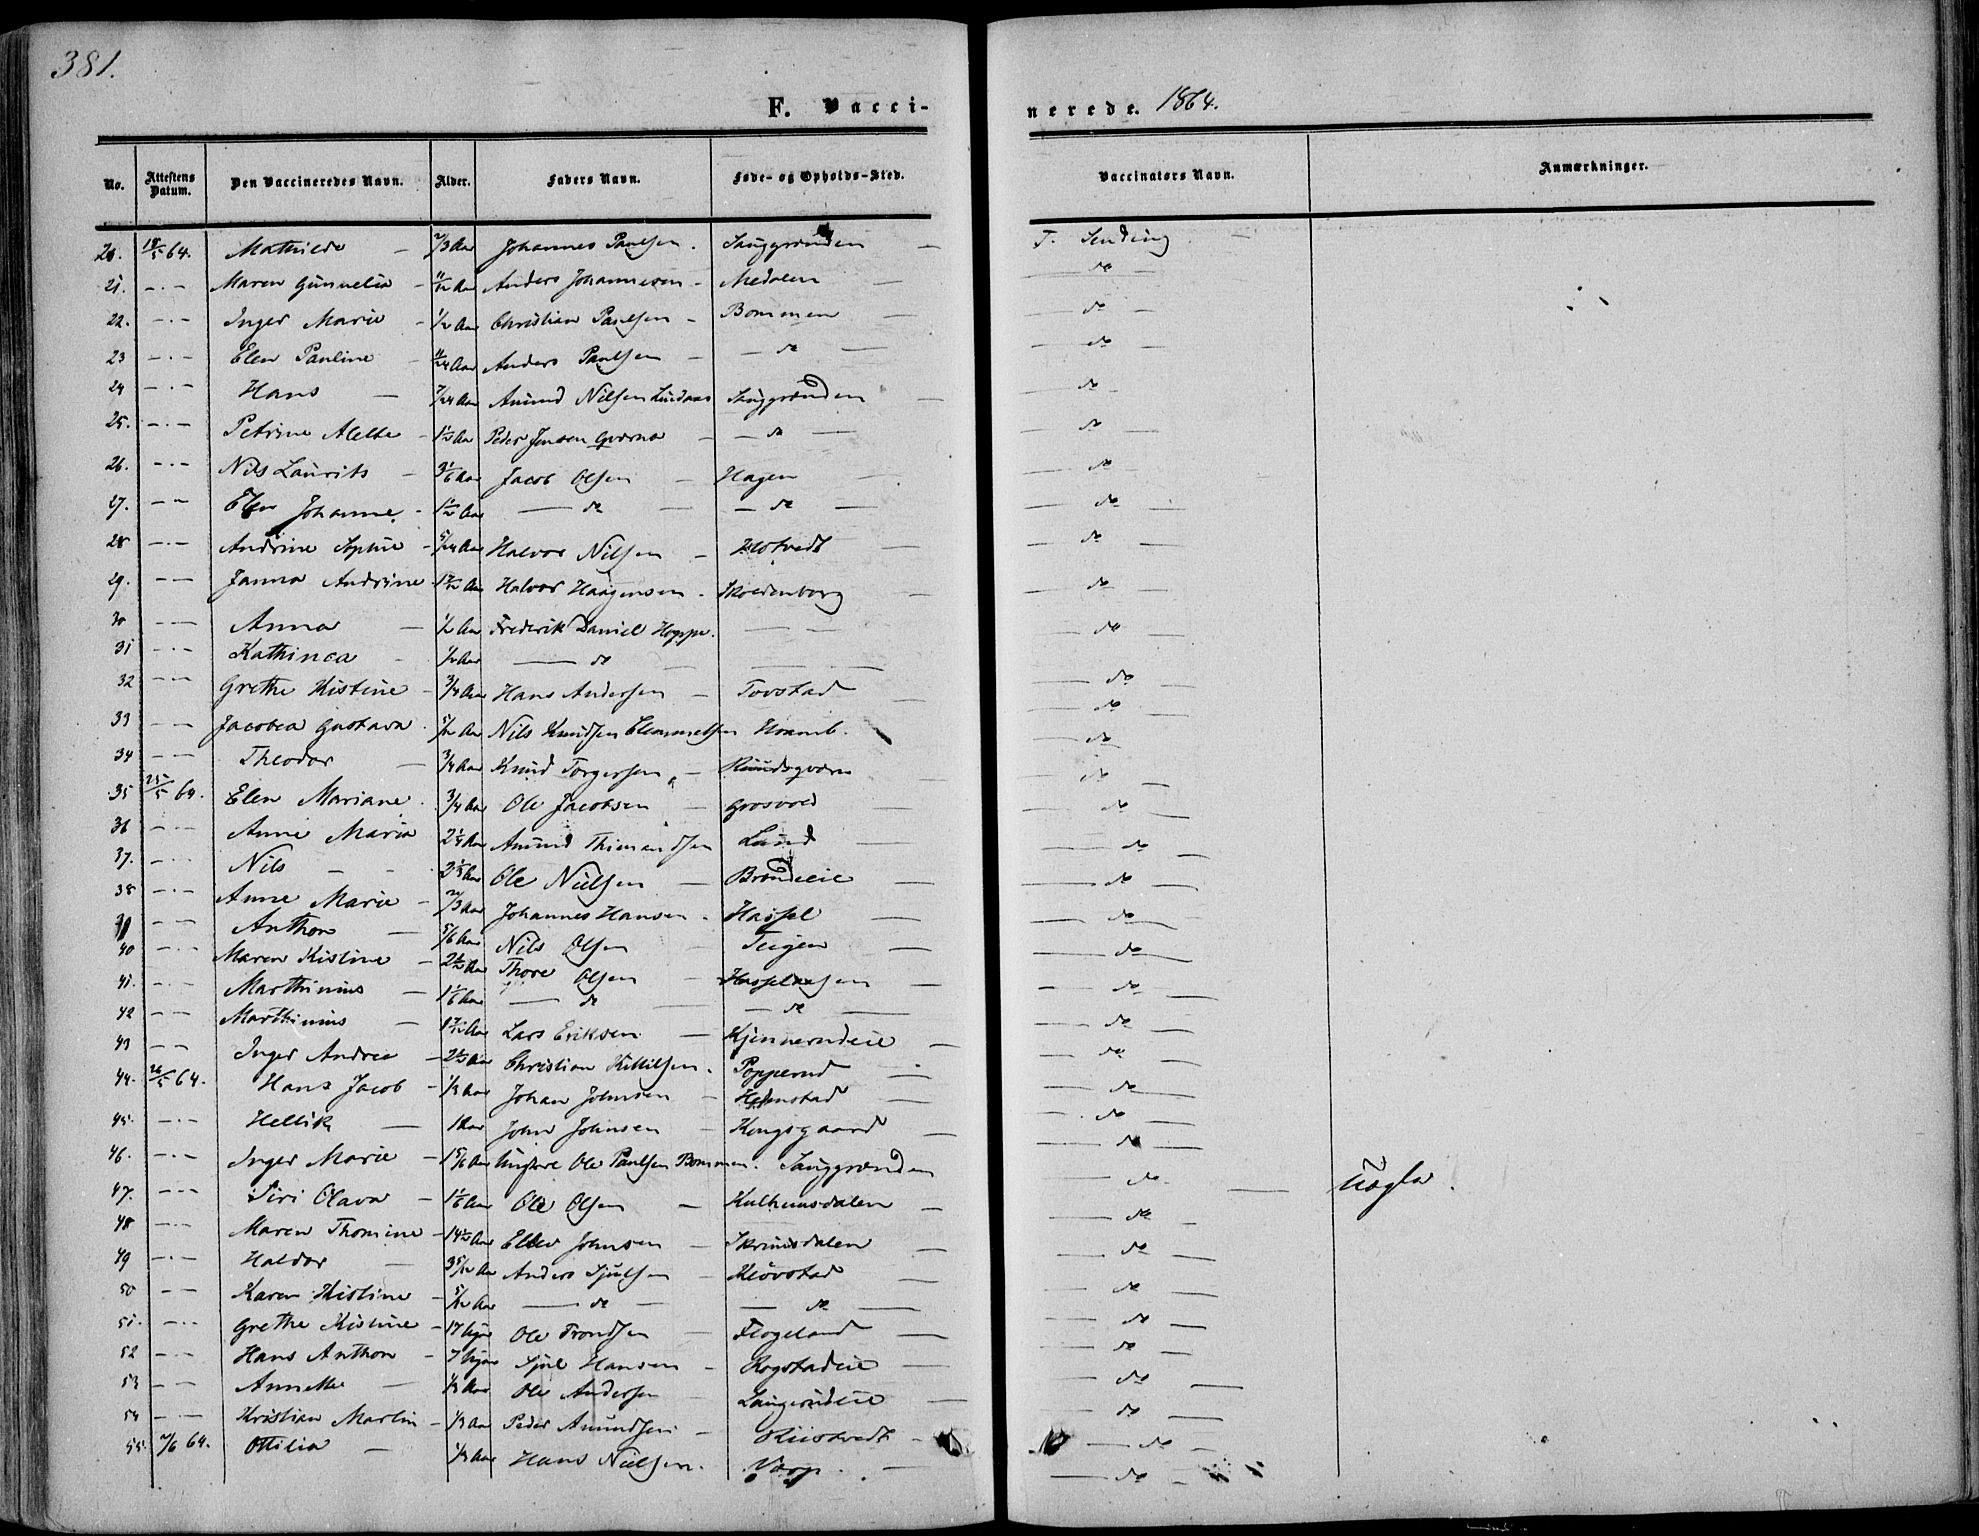 381.
F. Vacci-
nerede. 1864.
No. Attestens Datum. Den Vaccineredes Navn. Alder. Faders Navn. Føde- og Opholds-Sted. Vaccinators Navn. Anmærkninger.
20. 18/5 64. Mathilde — 2/3 Aar Johannes Paulsen. Sauggrenden — T. Sending —
21. — Maren Gunnelia — 11/12 Aar Anders Johannesen — Medalen — do —
22. — Inger Marie — 1/2 Aar Christian Paulsen — Bommen — do —
23 — Elen Pauline — 11/24 Aar Anders Paulsen — do — do —
24 — Hans — 7/24 Aar Amund Nilsen Lindaas Sauggrenden — do —
25. — Petrine Alette — 1 1/2 Aar Peder Jensen Qværna — do — do —
26. — Nils Laurits — 3 1/6 Aar Jacob Olsen — Hagen — do —
27. — Johanne — 1 1/2 Aar — do — do — do —
28 — Andrine Sophie — 5/24 Aar Halvor Nilsen — — do —
29. — Janna Andrine 1 7/12 Aar Halvor Haagensen — Skoldenborg — do —
30 — Anna — 1/2 Aar Frederik Daniel Hoppe. — do —
31 — Kathinca — 1/2 Aar — do — do —
32 — Grethe Kistine — 3/4 Aar Hans Andersen — Tovstad — do —
33 — Jacobea Gustava 5/12 Aar Nils Knudsen Clemmetsen — do —
34 — Theodor — 3/4 Aar Knud Torgersen — Ruudsqværn — do —
35 25/5 64. Elen Mariane 3/4 Aar Ole Jacobsen — Grosvold — do —
36 — Anne Maria 2 1/4 Aar Amund Lund — do —
37. — Nils — 2 1/3 Aar Ole Nielsen — Brondeie — do —
38 — Anne Marie — 2/3 Aar Johannes Hansen — Hassel — do —
— Anthon — 5/6 Aar Nils Olsen — Teigen — do —
40 — Maren Kistine — 2 1/2 Aar Thore Olsen — — do —
41. — Marthinius — 1 1/6 Aar — do — do — do —
42 — Marthinius — 1 7/12 Aar Lars Eriksen — Kjennerudeie — do —
43 — Inger Andrea — 2 1/2 Aar Christian Kittilsen. Popperud — do —
44. 26/5 64. Hans Jacob — 1/2 Aar Johan Johnsen — — do —
45. — Hellik — 1 Aar John Johnsen — Kongsgaard — do —
46. — Inger Marie — 1 5/6 Aar Ungkarl Ole Paulsen Bommen. Sauggrenden — do — Uægte.
47. — Siri Olava — 1 1/6 Aar Ole Olsen — Kulhuusdalen — do —
48 — Maren Thomine — 14 1/2 Aar Ellev Johnsen — Skrimsdalen — do —
49 — Haldor — 3 5/12 Aar Anders Sjulsen — Kløvstad — do —
50 — Karen Kistine — 5/12 Aar — do — do — do —
51. — Grethe Kistine — 17 Uger Ole Trondsen — Flogeland — do —
52 — Hans Anthon — 7 Uger Sjul Hansen — Rogstadeie — do —
53 — Annette — 1/2 Aar Ole Andersen — Langerudeie — do —
54 — Kristian Martin — 1/3 Aar Peder Amundsen — Riistvedt — do —
55. 2/6 64. Ottilia — 1/2 Aar Hans Nielsen. Varp. — do —